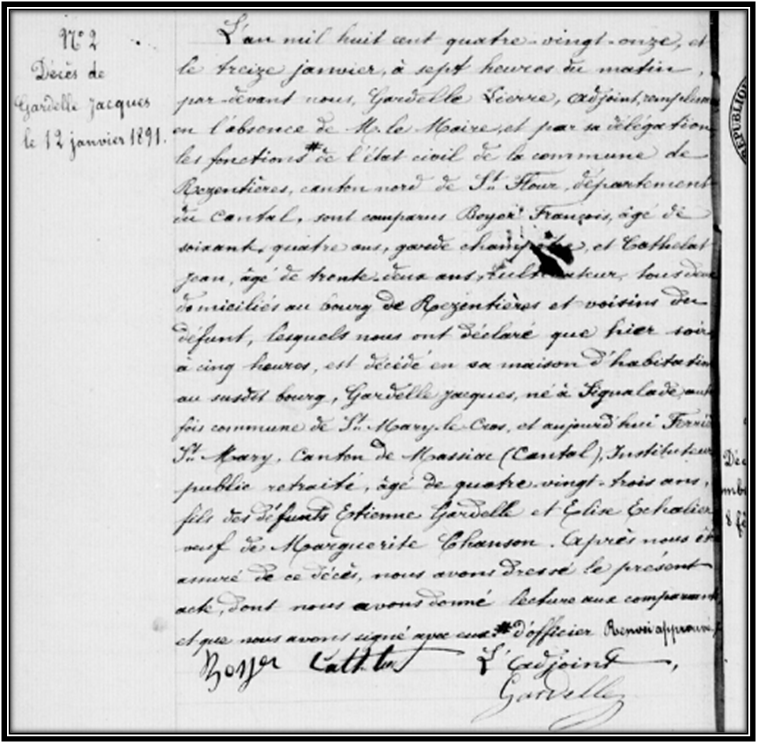 N° 2
Décès de
Gardelle Jacques
le 12 janvier 1891.
L'an mil huit cent quatre-vingt-onze, et
le treize janvier, à sept heures du matin,
par-devant nous, Gardelle Pierre, adjoint, remplissant
en l'absence de M. le Maire, et par sa délégation
les fonctions # de l'état civil de la commune de
Rezentières, canton nord de St Flour, département
du Cantal, sont comparus Boyer François, âgé de
soixante-quatre ans, garde champêtre, et Cathelat
Jean, âgé de trente-deux ans, cultivateur, tous deux
domiciliés au bourg de Rezentières et voisins du
défunt, lesquels nous ont déclaré que hier soir
à cinq heures, est décédé en sa maison d'habitation
au susdit bourg, Gardelle Jacques, né à Signalade, autre
fois commune de St Mary-le Cros, et aujourd'hui Ferrière
St Mary, Canton de Massiac (Cantal), Instituteur
public retraité, âgé de quatre-vingt-trois ans,
fils des défunts Etienne Gardelle et Elise Echalier
veuf de Marguerite Chanson. Après nous être
assuré de ce décès, nous avons dressé le présent
acte, dont nous avons donné lecture aux comparants
et que nous avons signé avec eux. # d'officier Renvoi approuvé.
Boyer L'adjoint,
Gardelle
RÉPUBLIQUE